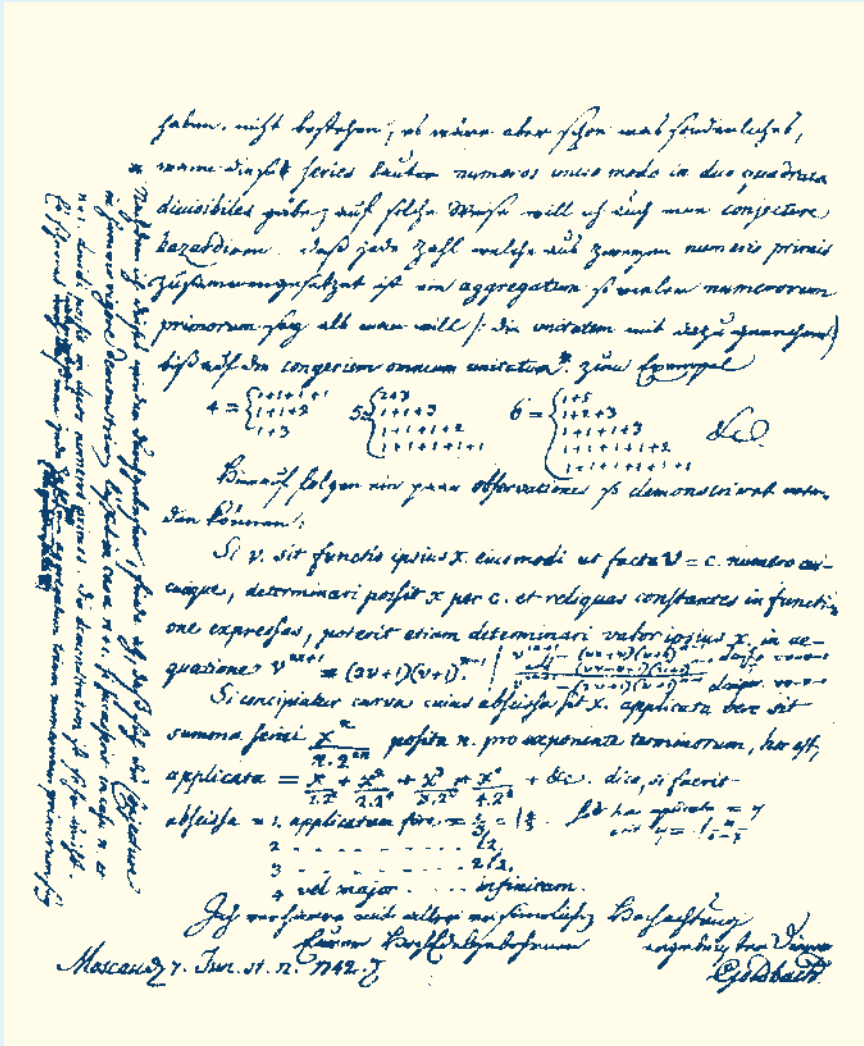 haben, nicht bestehen, es wäre aber schon was sonderliches,
wann diese series lauter numeros unico modo in duo quadrata
divisibiles gäbe, auf solche Weise will ich auch eine conjecture
hazardiren: daß jede Zahl welche aus zweyen numeris primis
zusammengesetzet ist ein aggregatum so vieler numerorum
primorum sey als man will /: die unitatem mit dazu gerechnet)
biß auf die congeriem omnium unitatum*. zum Exempel
4 = {1+1+1+1 1+1+2 1+3 5 = {2+3 1+1+3 1+1+1+2 1+1+1+1+1 6 = {1+5 1+2+3 1+1+1+3 1+1+1+1+2 1+1+1+1+1+1 &c.
Hierauf folgen ein paar observationes so demonstriret wer-
den können:
Si v. sit functio ipsius x. eiusmodi ut facta v = c. numero cui-
cunque, determinari possit x per c. et reliquas constantes in functi-
one expressas, poterit etiam determinari valor ipsius x. in ae-
quatione v = (2v+1)(v+1)
Si concipiatur curva cuius abscissa sit x. applicata vero sit
summa seriei x^n/n.2^2n posita n. pro exponente terminorum, hoc est,
applicata = x/1.2² + x²/2.2⁴ + x³/3.2⁶ + x⁴/4.2⁸ + &c. dico, si fuerit
abscissa = 1. applicatam fore = l 4/3
2 - - - - - - - l2.
3 - - - - - - - 2l2.
4 vel major - - - - infinitam.
Ich verharre mit aller ersinnlichen Hochachtung
Eurer Hochedelgebohrnen ergebenster Diener
Moscau d. 7. Jun. st. n. 1742. Goldbach.
* Nachdem ich dieses wieder durchgelesen, finde ich, daß sich die conjecture
in summo rigore demonstriren läßet in casu n+1. si successerit in casu n. et
n+1. dividi possit in duos numeros primos. die demonstration ist sehr leicht.
Es scheinet daß eine jede Zahl ein aggregatum trium numerorum primorum sey